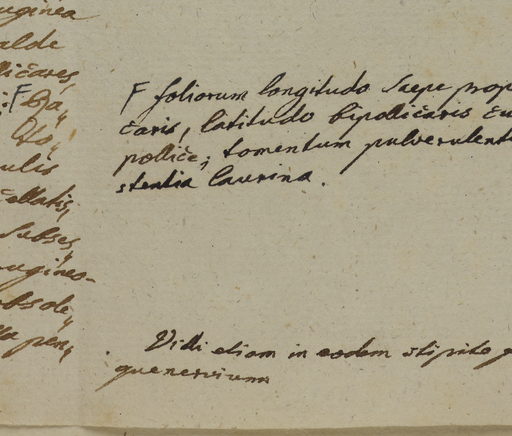 uginea
alde
llicares,
:F Ba„
Oto„
ulis
cellatis,
subses„
ugineo-
obsole„
pen„
F foliorum longitudo saepe prop
caris, latitudo bipollicaris cu
pollice; tomentum pulverulent
stentia laurina.
Vidi etiam in eodem stipite
quenervium